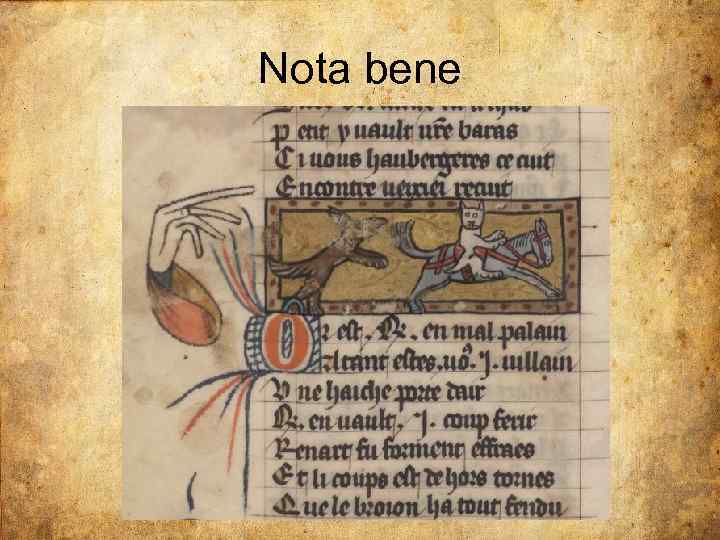 Nota bene
Peut y vault vre baras
Ci vous haubergeres ce cuit
Encontre
Or est .R. en mal palain
estes .I. uillain
Une haiche porte dair
.R. en vault .I. coup ferir
Renart fu forment effraes
Et li coups est dehors tornes
Que le broion ha tout fendu